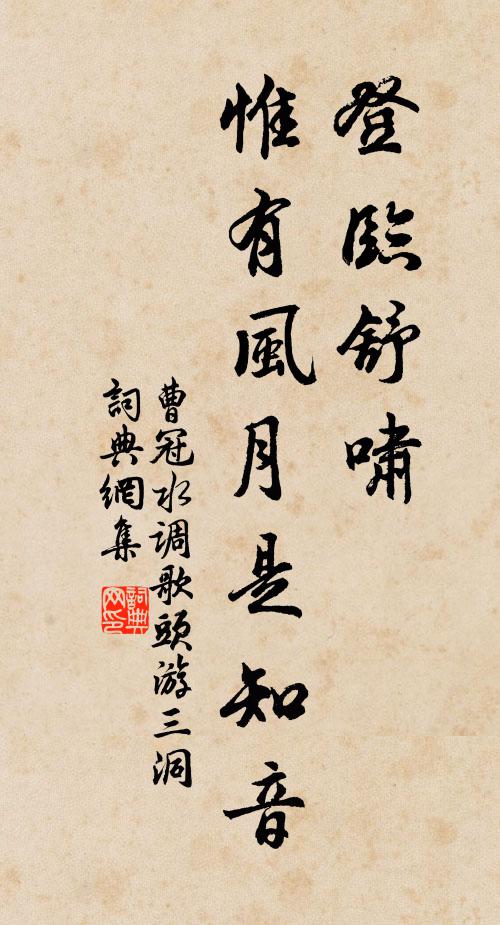 登臨舒嘯
惟有風月是知音
曹冠水調歌頭游三洞
詞典網集
詞典
网印